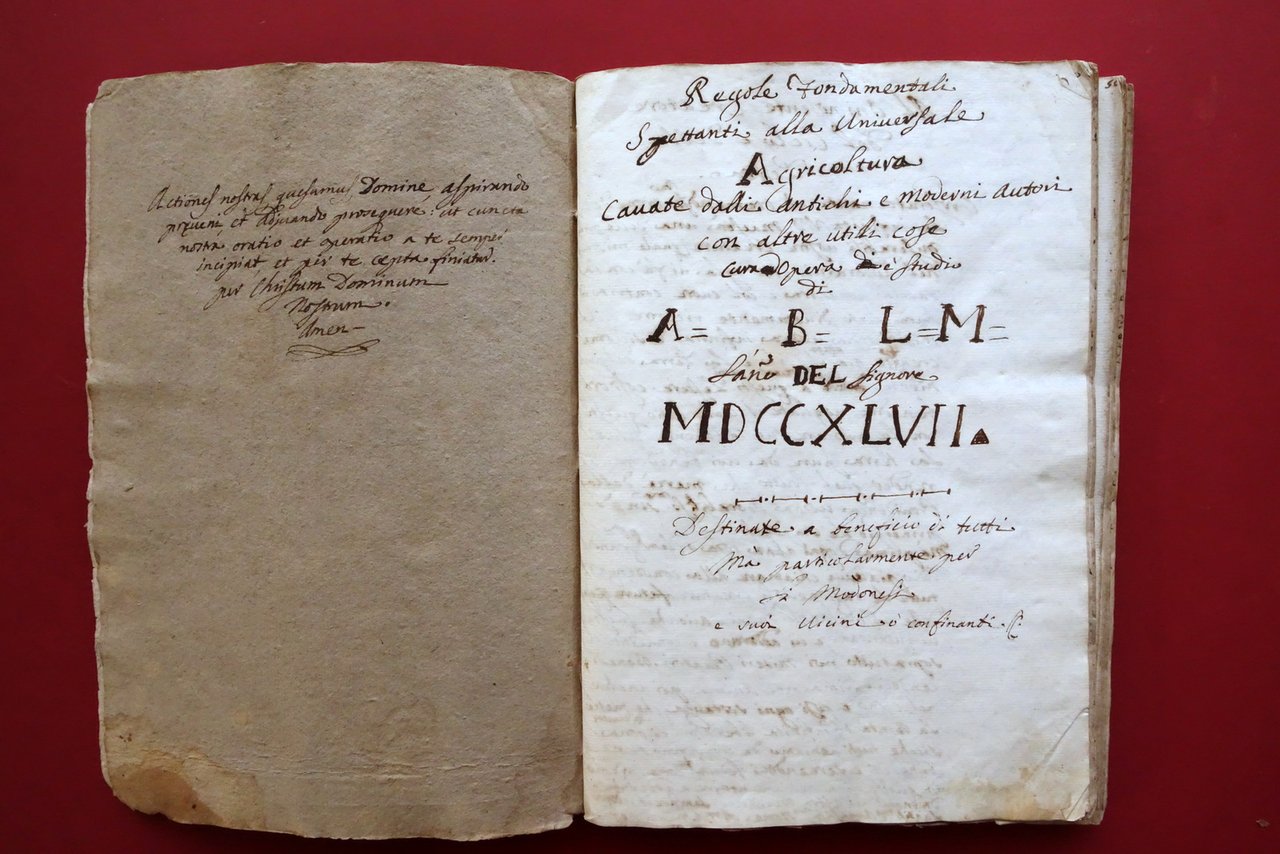 Actiones nostras quesumus, Domine aspirando
preveni et adjuvando prosequeré: ut cuncta
nostra oratio et operatio a te semper
incipiat et per te cepta finiatur.
per Christum Dominum
Nostrum.
Amen
Regole Fondamentali
Spettanti alla Universale
Agricoltura
Cavate dalli Antichi e Moderni Autori
con altre utili cose
Cura Opera è studio
di
A= B= L=M=
L'año DEL signore
MDCCXLVII
Destinate a beneficio di tutti
Mà particolarmente per
i Modonesi
e suoi Vicini ò confinanti.